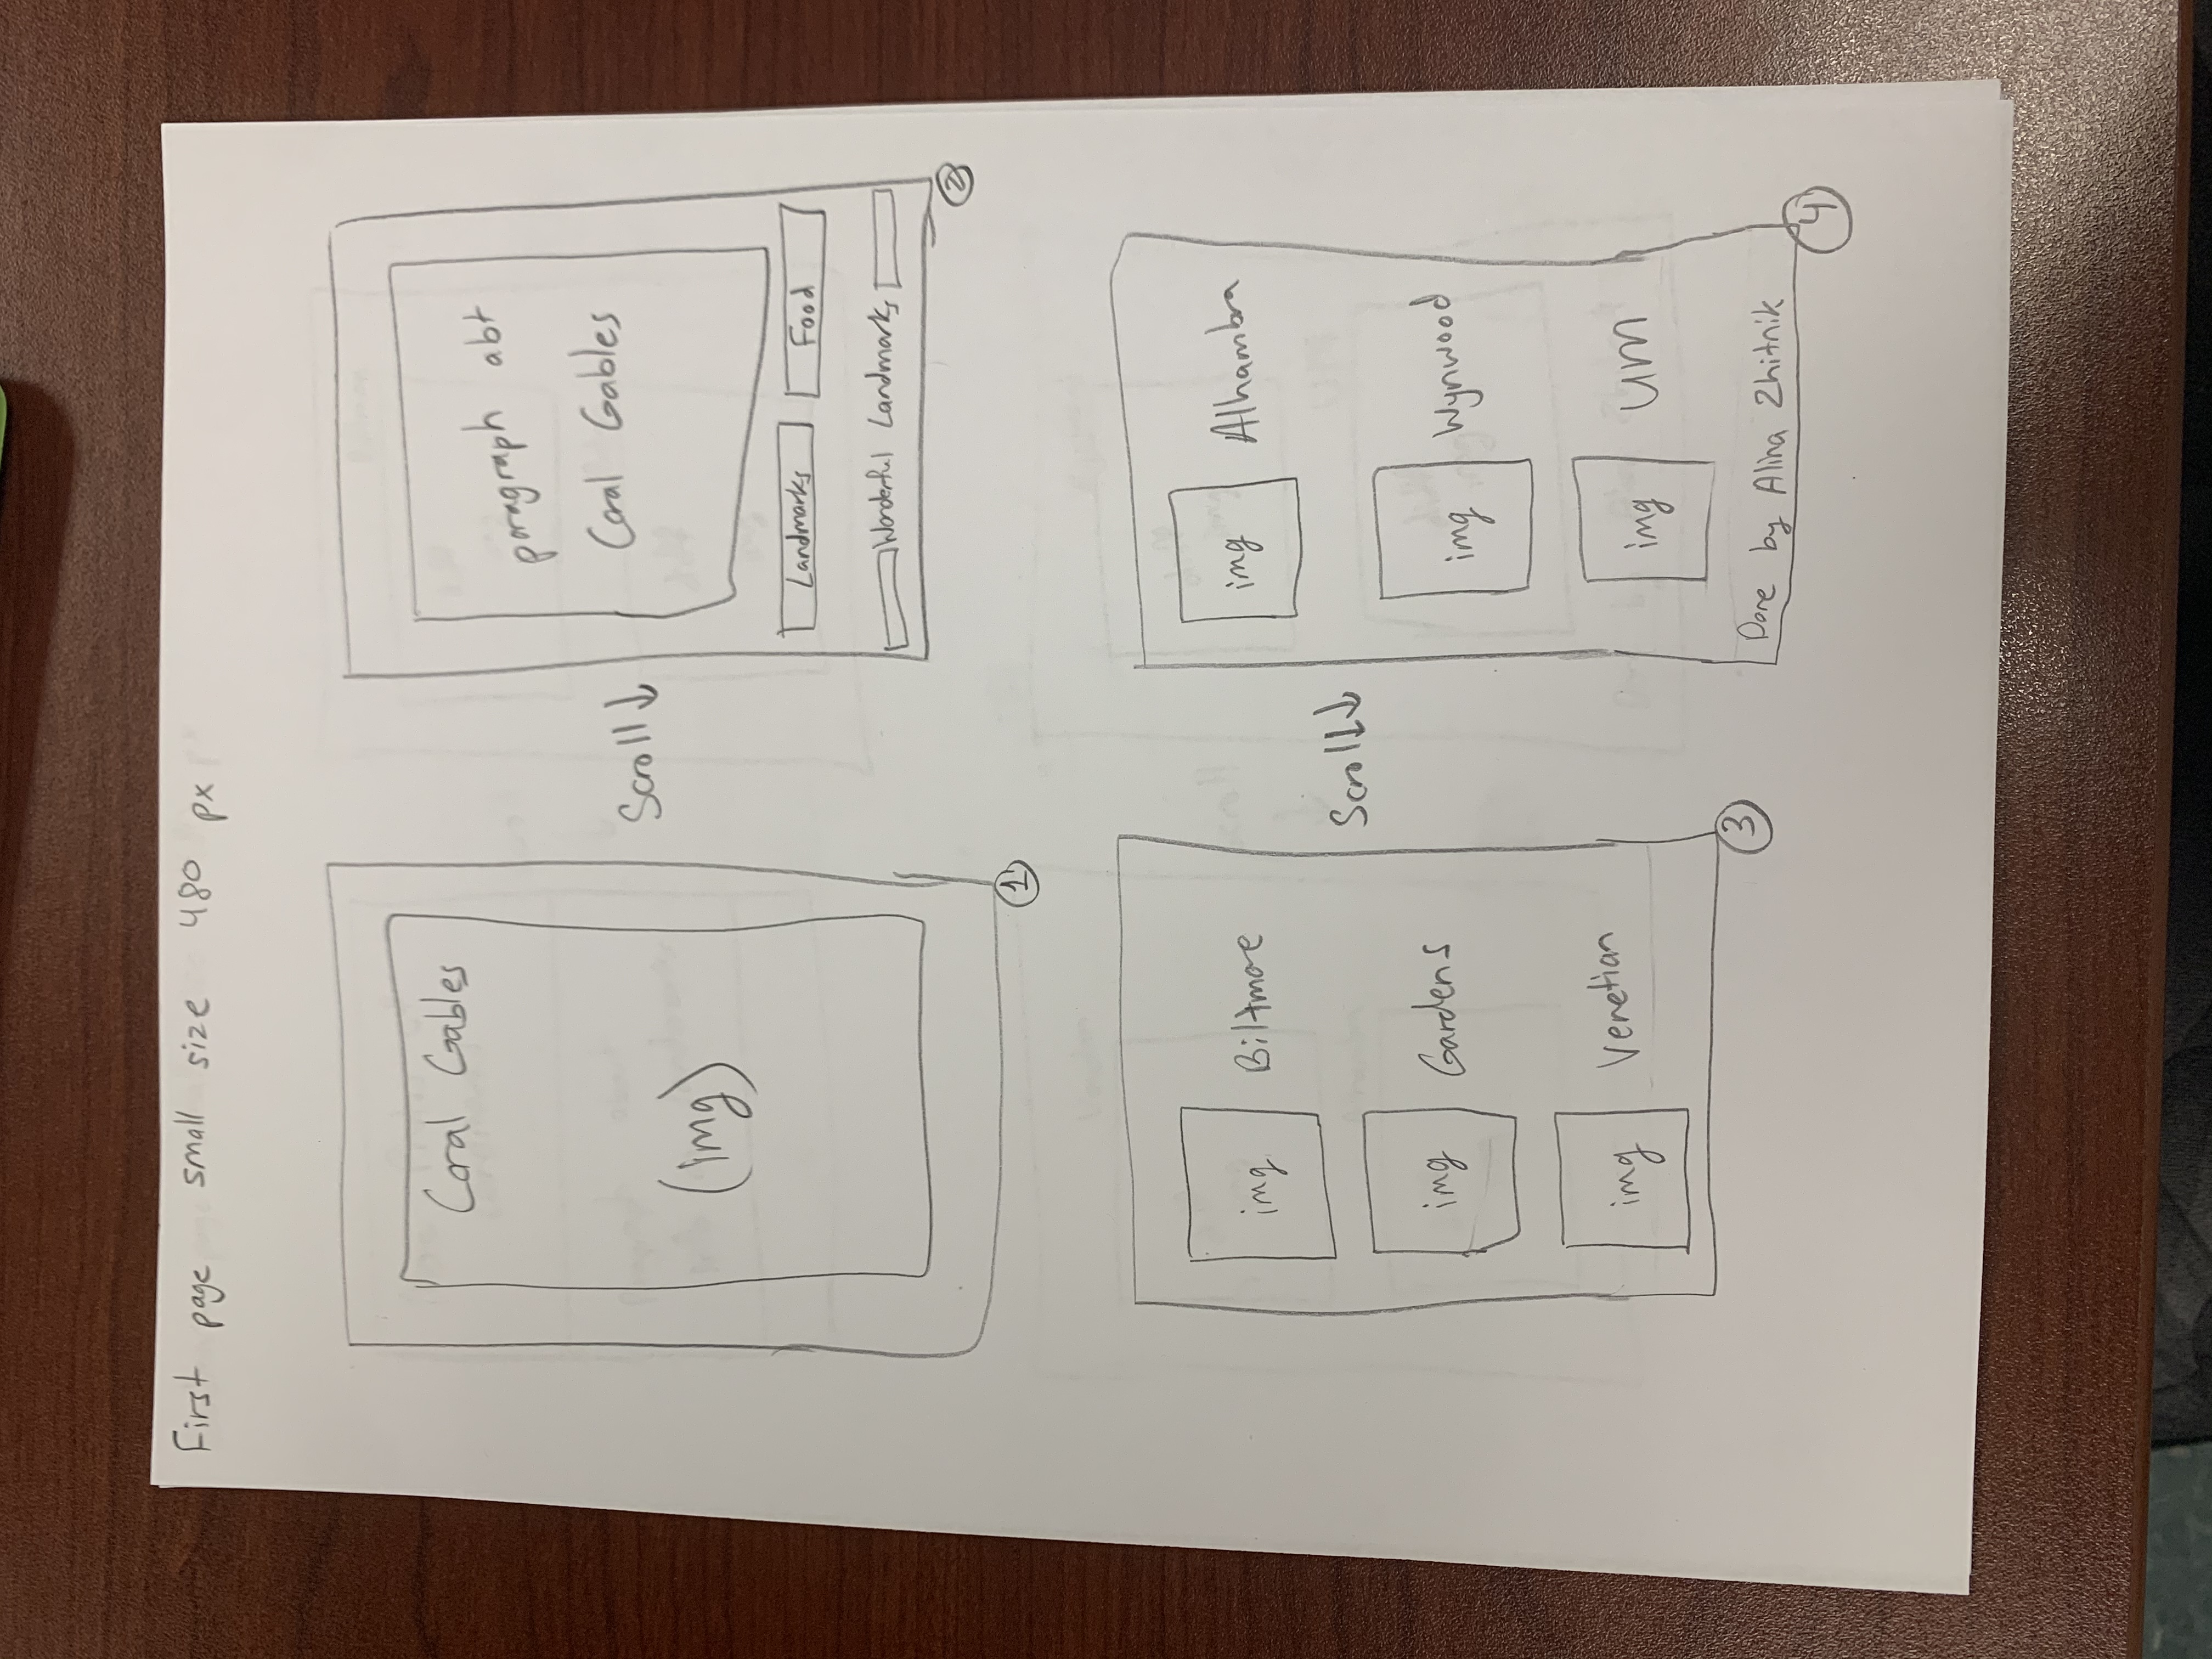 First page small size 480 px
Coral Gables
(img)
1
Scroll ↓
paragraph abt
Coral Gables
Landmarks
Food
Wonderful Landmarks
2
img Biltmore
img Gardens
img Venetian
3
Scroll ↓↓
img Alhambra
img Wynwood
img UM
Done by Alina Zhitnik
4